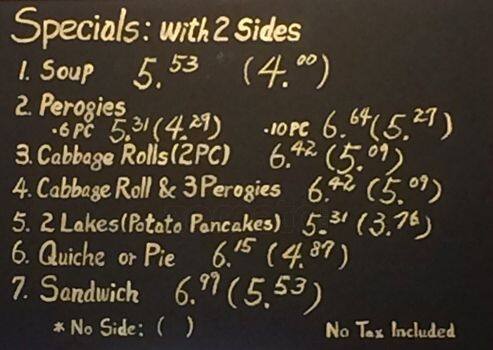 Specials: with 2 Sides
1. Soup 5.53 (4.00)
2. Perogies
·6 PC 5.31 (4.29) ·10 PC 6.64 (5.27)
3. Cabbage Rolls (2PC) 6.42 (5.09)
4. Cabbage Roll & 3 Perogies 6.42 (5.09)
5. 2 Lakes (Potato Pancakes) 5.31 (3.76)
6. Quiche or Pie 6.15 (4.87)
7. Sandwich 6.99 (5.53)
* No Side: ( ) No Tax Included